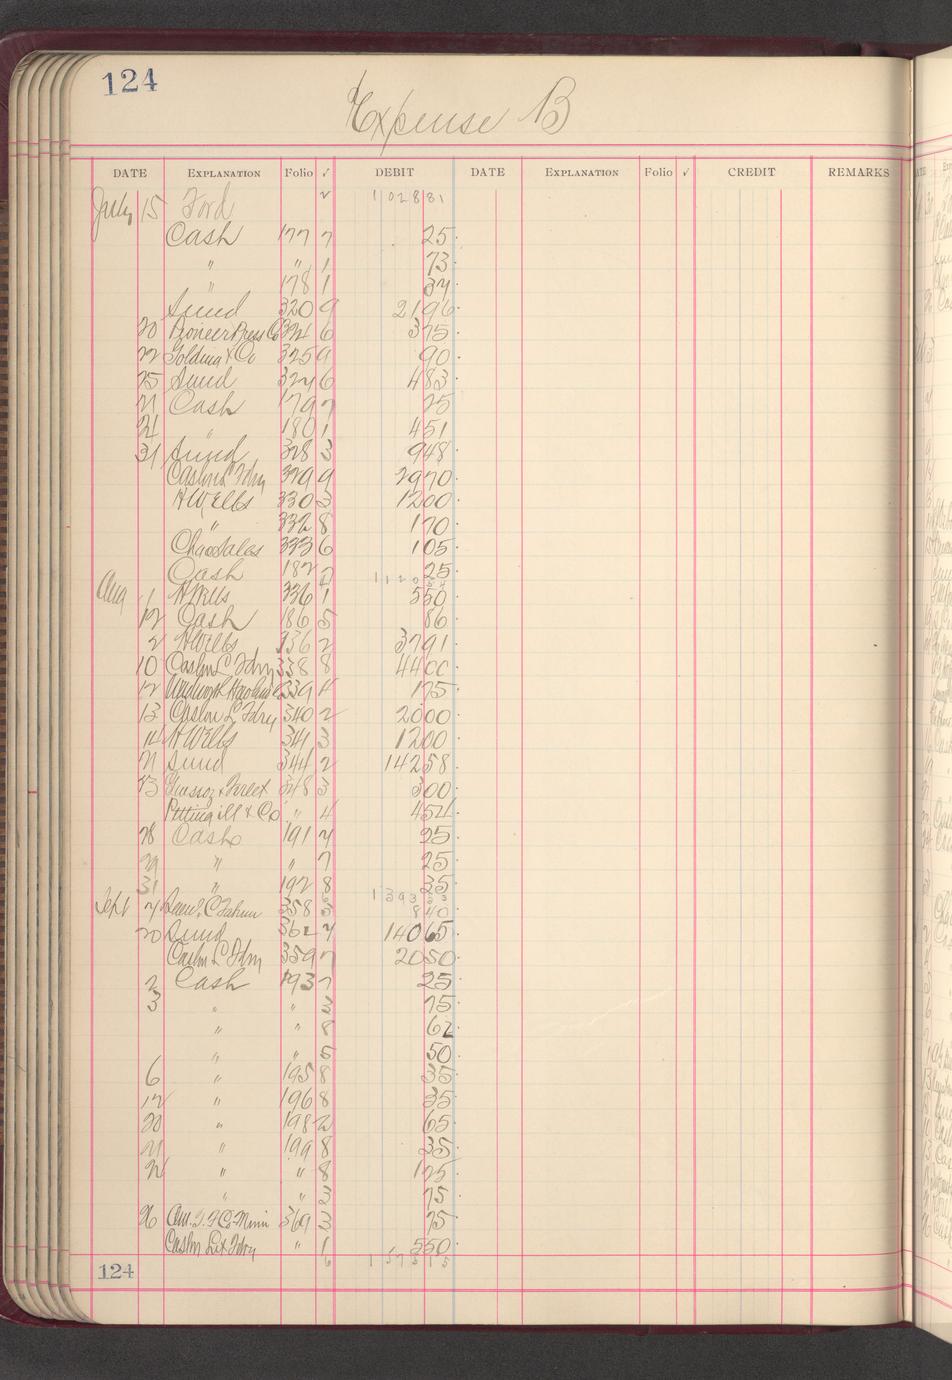 124
Expense B
DATE EXPLANATION Folio √ DEBIT DATE EXPLANATION Folio √ CREDIT REMARKS
July 15 Ford 2 1 028 81
Cash 177 7 25
" " 1 73
" 178 1 34
Sund 320 9 2196
20 Pioneer Press Co 324 6 375
22 Golding & Co 325 9 90
25 Sund 6 483
21 Cash 179 7 25
" 180 1 451
31 Sund 328 3 948
Caslon L Fdry 329 9 2970
H Wells 330 3 1200
" 332 8 170
Chas Sales 333 6 105
Cash 187 25
Aug 1 H Wells 336 1 550
12 Cash 186 5 86
2 H Wells 336 2 3791
10 Caslon L Fdry 338 8 4400
12 339 4 175
13 Caslon L Fdry 340 2 2000
14 H Wells 341 3 1200
21 Sund 344 2 14258
23 348 3 300
Pettingill & Co " 4 454
28 Cash 191 7 25
29 " " 7 25
31 " 192 8 35
1 393 53
Sept 358 5 840
20 Sund 362 14065
Caslon L Fdry 359 7 2050
2 Cash 193 7 25
3 " " 3 75
" " 8 62
" " 5 50
6 " 195 8 35
12 " 196 8 35
20 " 198 2 65
21 " 199 8 35
" " 8 125
" " 3 75
26 Am. T. F Co Minn 369 3 75
Caslon Let Fdry " 1 550
6 1 573 15
124